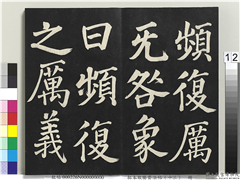 頻復厲
无咎象
曰頻復
之厲義
12